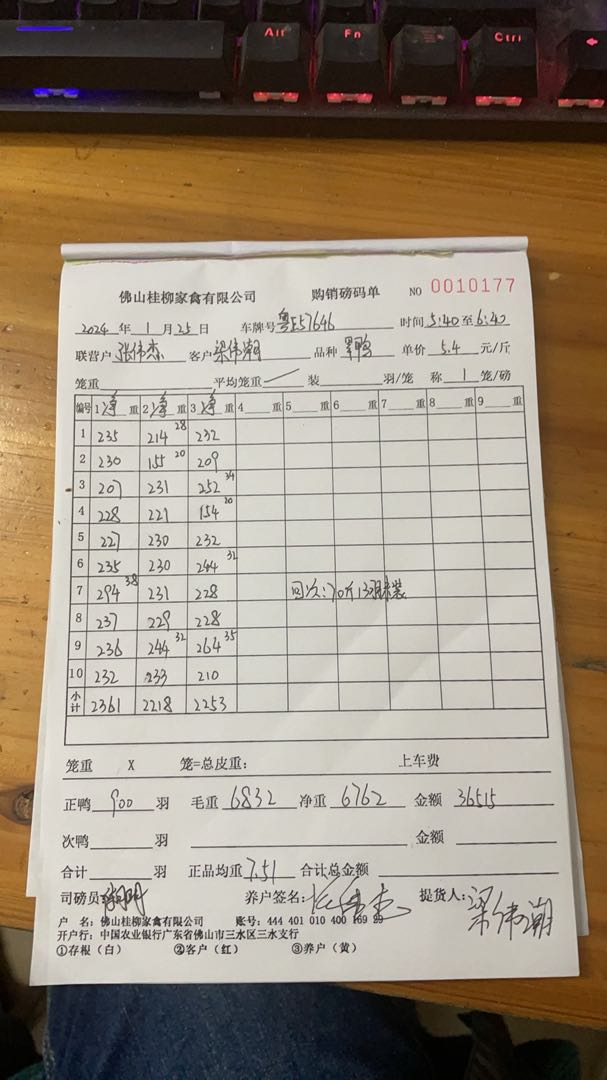 Alt Fn Ctrl
佛山桂柳家禽有限公司 购销磅码单 NO 0010177
2024 年 1 月 25 日 车牌号 粤E57646 时间 5:40 至 6:40
联营户 张伟杰 客户 梁伟潮 品种 鸭 单价 5.4 元/斤
笼重 平均笼重 装 羽/笼 称 1 笼/磅
编号 1 净 重 2 净 重 3 净 重 4 重 5 重 6 重 7 重 8 重 9 重
1 235 214 28 232
2 230 155 20 209
3 207 231 252 34
4 228 221 154 20
5 227 230 232
6 235 230 244 32
7 294 38 231 228 回次:70斤13羽 装
8 237 229 228
9 236 244 32 264 35
10 232 233 210
小计 2361 2218 2253
笼重 X 笼=总皮重: 上车费
正鸭 900 羽 毛重 6832 净重 6762 金额 36515
次鸭 羽 金额
合计 羽 正品均重 7.51 合计总金额
司磅员: 养户签名: 张伟杰 提货人: 梁伟潮
户 名: 佛山桂柳家禽有限公司 账号: 444 401 010 400 169 29
开户行: 中国农业银行广东省佛山市三水区三水支行
①存根(白) ②客户(红) ③养户(黄)